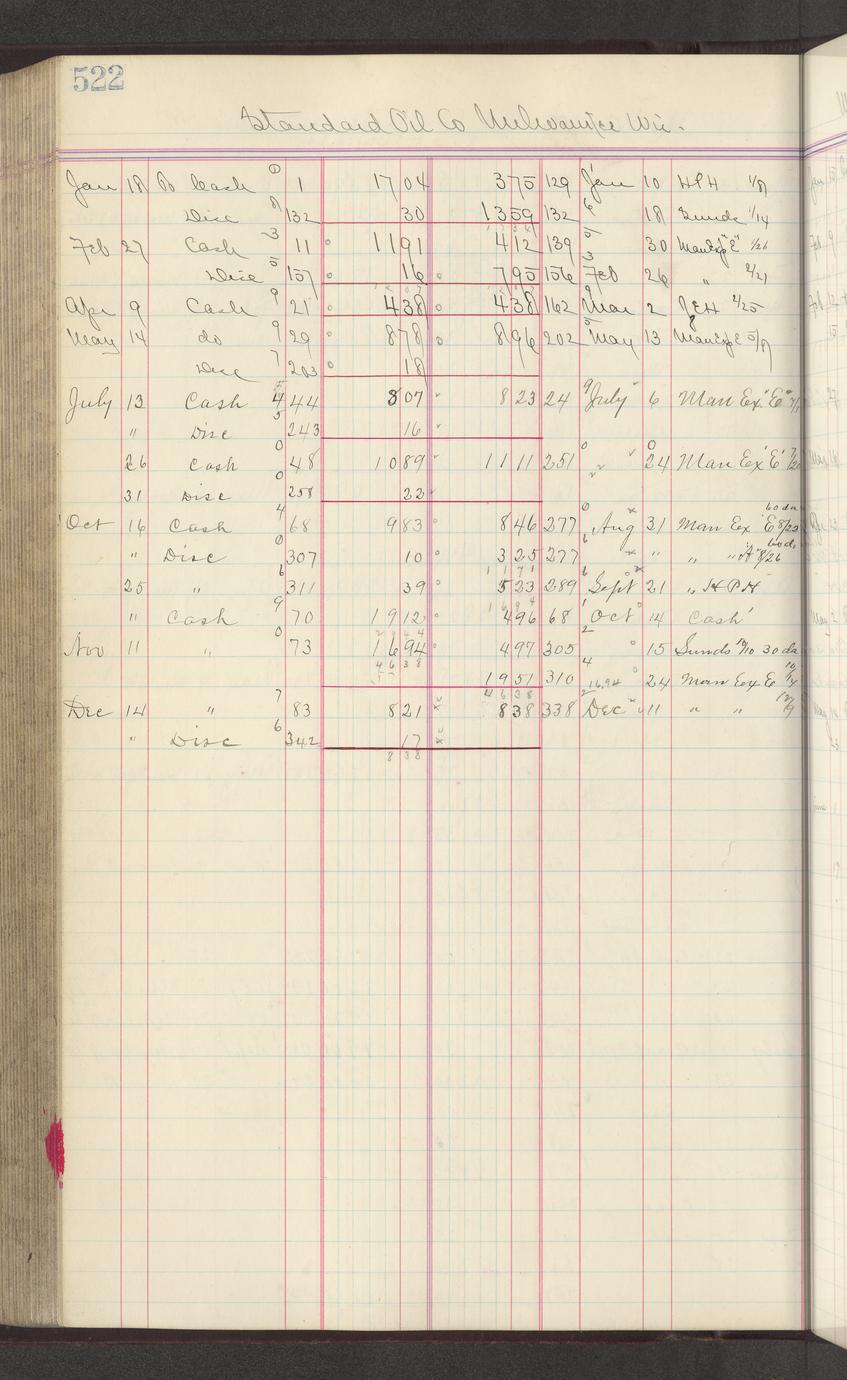 522
Standard Oil Co Milwaukee Wis.
Jan 18 By Cash 1 1704 375 129 Jan 10 HPH 1/8
Disc 132 30 1359 132 18 Sunds 1/14
Feb 27 Cash 11 1191 412 139 30 ManExp "E" 1/26
Disc 157 16 795 156 Feb 26 " 2/21
Apr 9 Cash 21 438 438 162 Mar 2 2/25
May 14 do 29 878 896 202 May 13 ManExp E 5/8
Disc 203 18
July 13 Cash 44 807 823 24 July 6 Man Ex. "E"
" Disc 243 16
26 Cash 48 1089 1111 251 " 24 Man Ex "E"
31 Disc 258 22
Oct 16 Cash 68 983 846 277 Aug 31 Man Ex "E" 8/23 60 da
" Disc 307 10 325 277 " " " "A" 8/26 60 d
25 " 311 39 523 289 Sept 21 " HPH
" Cash 70 1912 496 68 Oct 14 Cash
Nov 11 " 73 1694 497 305 15 Sunds 10/10 30 da
4638 1951 310 16.94 24 Man Exp E 10/14
Dec 14 " 83 821 4638 838 338 Dec 11 " "
" Disc 342 17
838